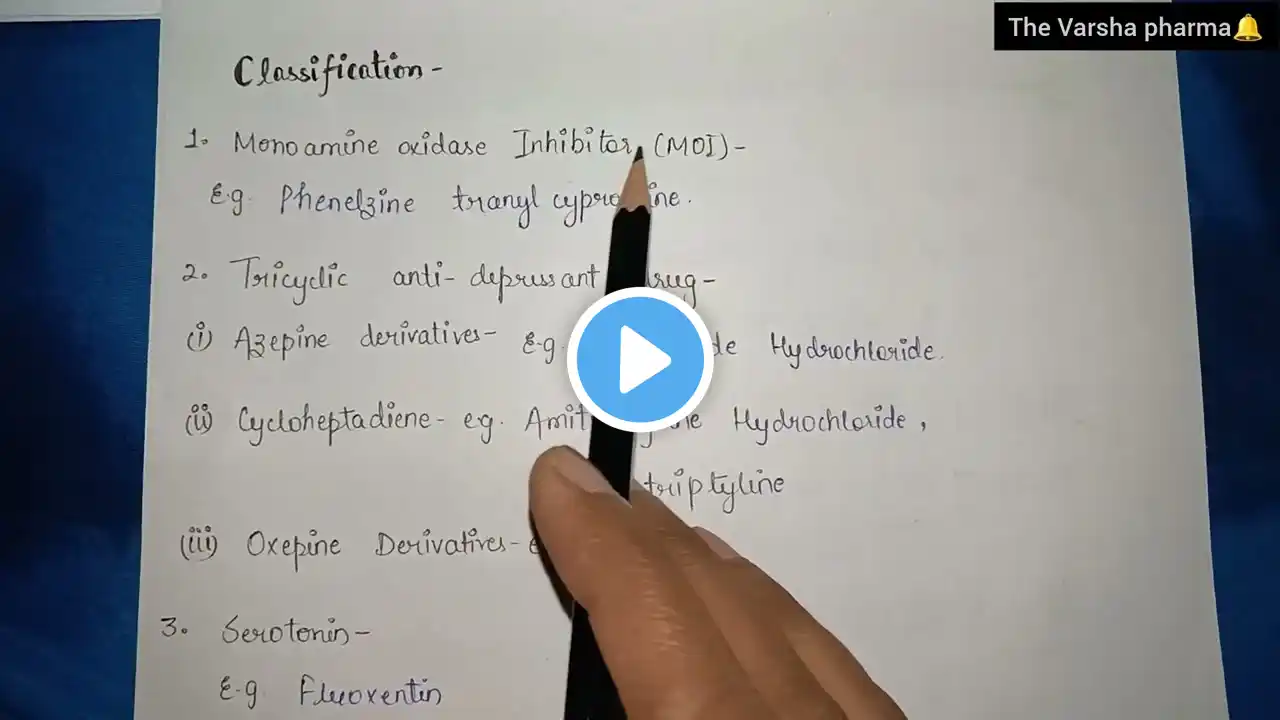 The Varsha pharma🔔
Classification-
1. Monoamine oxidase Inhibitor (MOI)-
E.g. Phenelzine tranyl
2. Tricyclic anti-depressant
(i) Azepine derivatives- E.g. Hydrochloride.
(ii) Cycloheptadiene- eg. Hydrochloride,
(iii) Oxepine Derivatives-
3. Serotonin-
E.g Fluoxentin